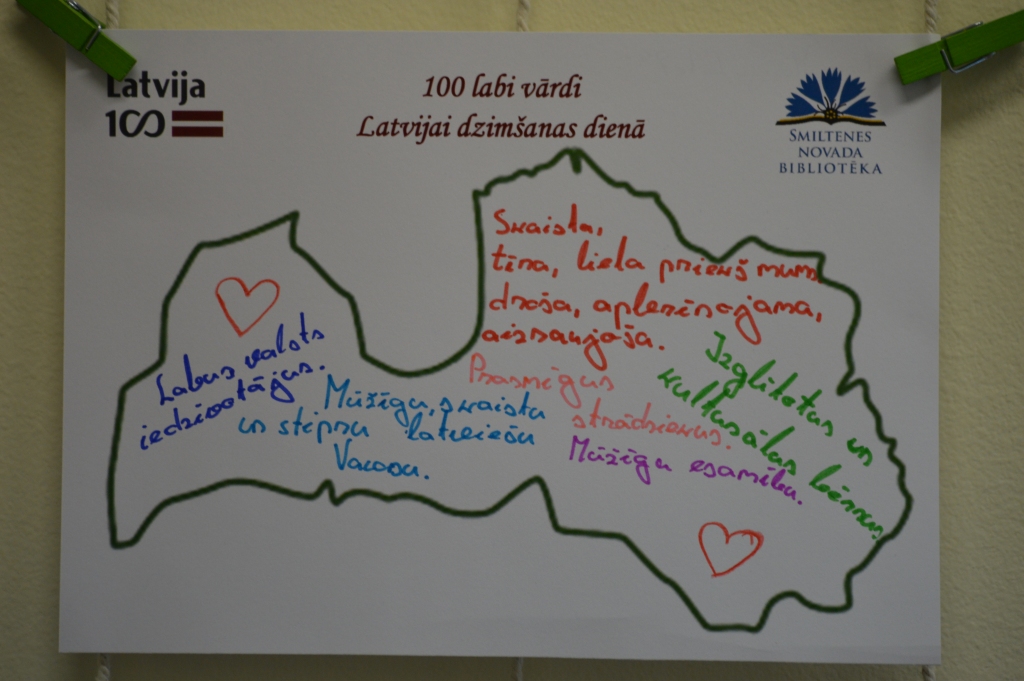 Latvija
100
100 labi vārdi
Latvijai dzimšanas dienā
SMILTENES
NOVADA
BIBLIOTĒKA
Skaista,
tīra, liela priekš mums,
droša, aplezīnojama,
aizraujoša.
Labus valsts
iedzīvotājus.
Mūžīgu, skaistu
un stipru latviešu
Valodu.
Prasmīgus
strādniekus.
Mūžīgu esamību.
Izglītotus un
kulturālus bērnus